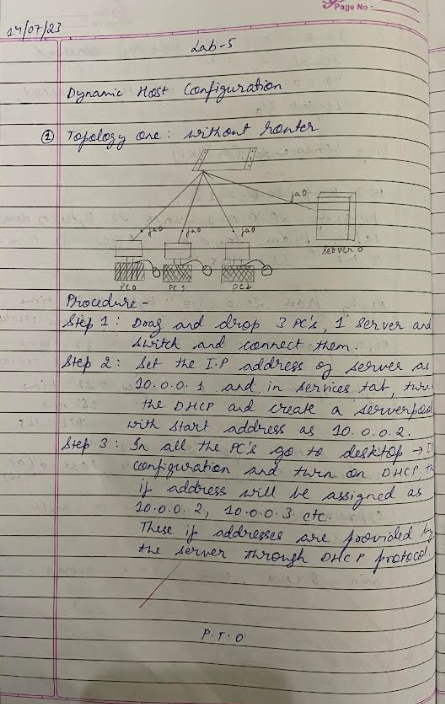 Page No :
14/07/23
Lab-5
Dynamic Host Configuration
① Topology one: without router
fa0 fa0 fa0 fa0
Server 0
PC0 PC1 PC2
Procedure -
Step 1: Drag and drop 3 PC's, 1 Server and
switch and connect them.
Step 2: Set the I.P address of server as
10.0.0.1 and in services tab,
the DHCP and create a serverpool
with start address as 10.0.0.2.
Step 3: In all the PC's go to desktop →
configuration and turn on DHCP,
ip address will be assigned as
10.0.0.2, 10.0.0.3 etc.
These ip addresses are provided by
the server through DHCP protocol.
P.T.O